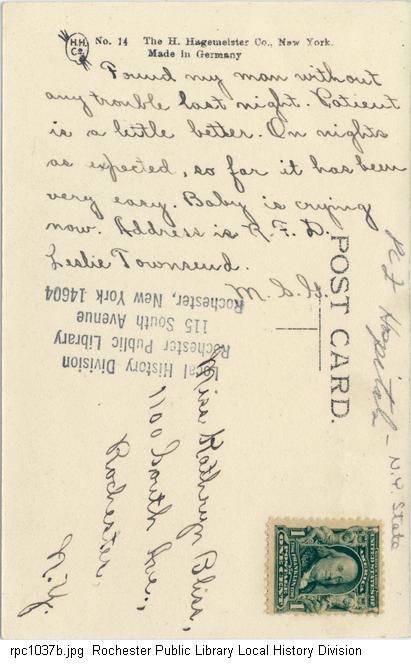 H.H. Co.
No. 14 The H. Hagemeister Co., New York.
Made in Germany
Found my man without
any trouble last night. Patient
is a little better. On nights
as expected, so far it has been
very easy. Baby is crying
now. Address is R.F.D.
Leslie Townsend.
M. S. G.
POST CARD.
Hospital - N.Y. State
Local History Division
Rochester Public Library
115 South Avenue
Rochester, New York 14604
Miss Kathryn Bliss,
1100 South Ave.,
Rochester,
N.Y.
1
rpc1037b.jpg Rochester Public Library Local History Division